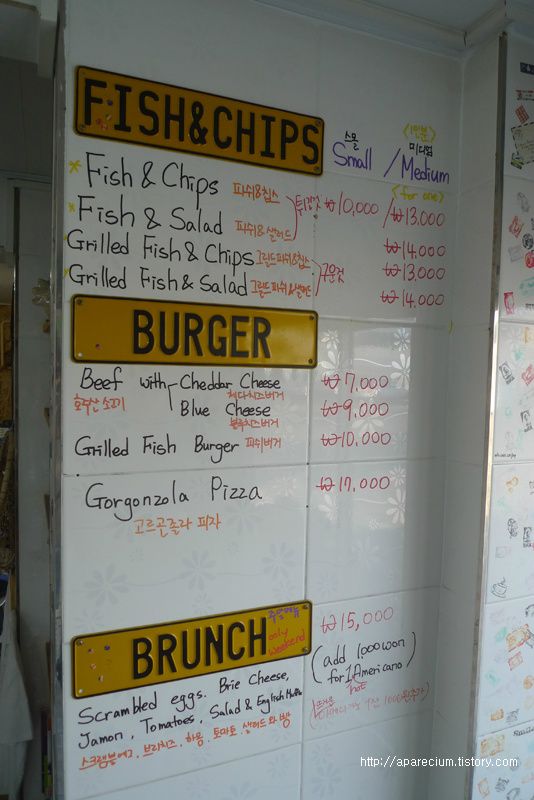 FISH&CHIPS
스몰 <1인분> 미디엄
Small / Medium
<for one>
* Fish & Chips 피쉬&칩스 튀긴것 ₩10,000 / ₩13,000
* Fish & Salad 피쉬&샐러드 ₩14,000
Grilled Fish & Chips 그릴드피쉬&칩스 구운것 ₩13,000
* Grilled Fish & Salad 그릴드피쉬&샐러드 ₩14,000
BURGER
Beef with Cheddar Cheese ₩7,000
호주산 소고기 체다치즈버거
Blue Cheese ₩9,000
블루치즈버거
Grilled Fish Burger 피쉬버거 ₩10,000
Gorgonzola Pizza ₩17,000
고르곤졸라 피자
BRUNCH only weekend ₩15,000
Scrambled eggs. Brie Cheese, (add 1,000won
Jamon, Tomatoes, Salad & English Muffin for 1 Americano)
hot
스크램블에그, 브리치즈, 하몽, 토마토, 샐러드와 빵
http://aparecium.tistory.com